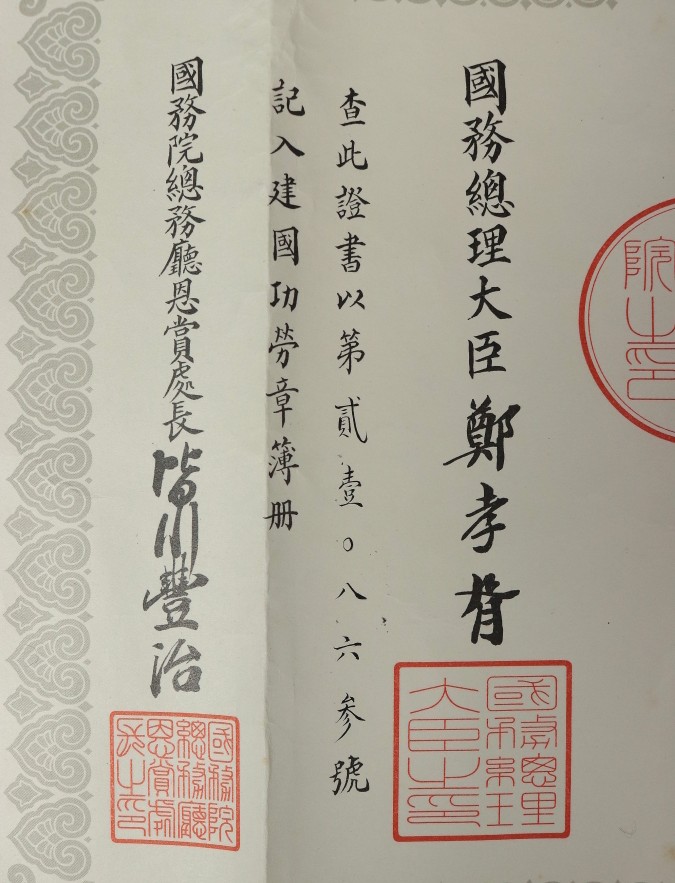 院之印
國務總理大臣鄭孝胥
國務總理
大臣之印
查此證書以第貳壹〇八六參號
記入建國功勞章簿册
國務院總務廳恩賞處長皆川豐治
國務院
總務廳
恩賞處
長之印